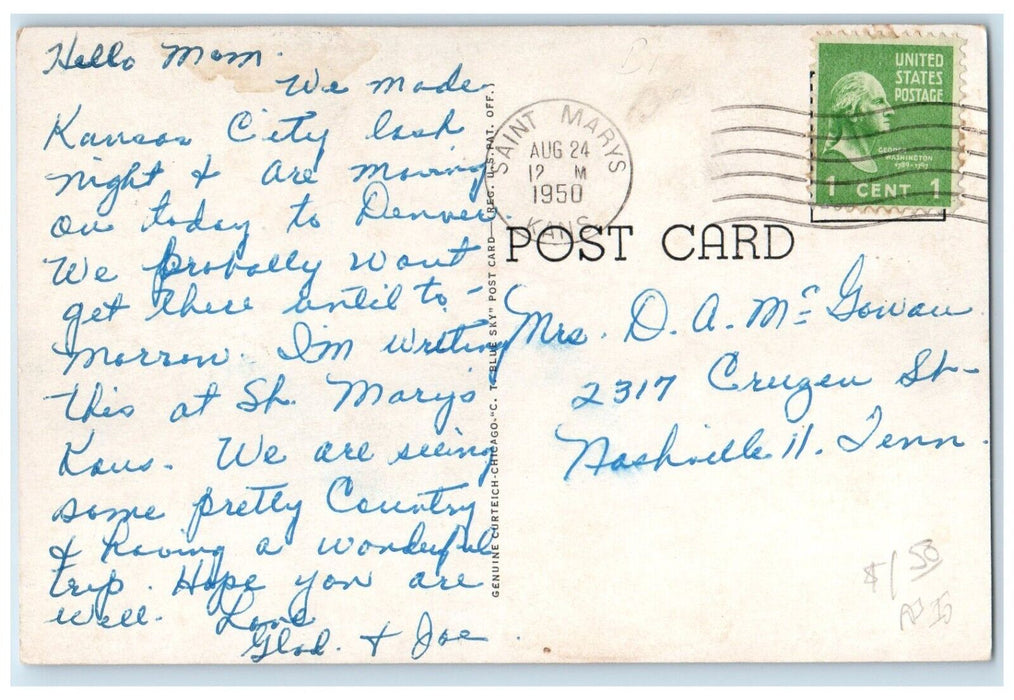 Hello Mom.
We made
Kansas City last
night & are moving
on today to Denver.
We probally wont
get there until to-
morrow. I'm writing
this at St. Marys
Kans. We are seeing
some pretty Country
& having a wonderful
trip. Hope you are
well. Love
Glad. & Joe.
GENUINE CURTEICH-CHICAGO-"C. T. BLUE SKY" POST CARD—(REG. U.S. PAT. OFF.)
SAINT MARYS
AUG 24
12 M
1950
KANS.
UNITED
STATES
POSTAGE
GEORGE
WASHINGTON
1789-1797
1 CENT 1
POST CARD
Mrs. D. A. McGowan
2317 Cruzen St-
Nashville 11. Tenn.
$1.50